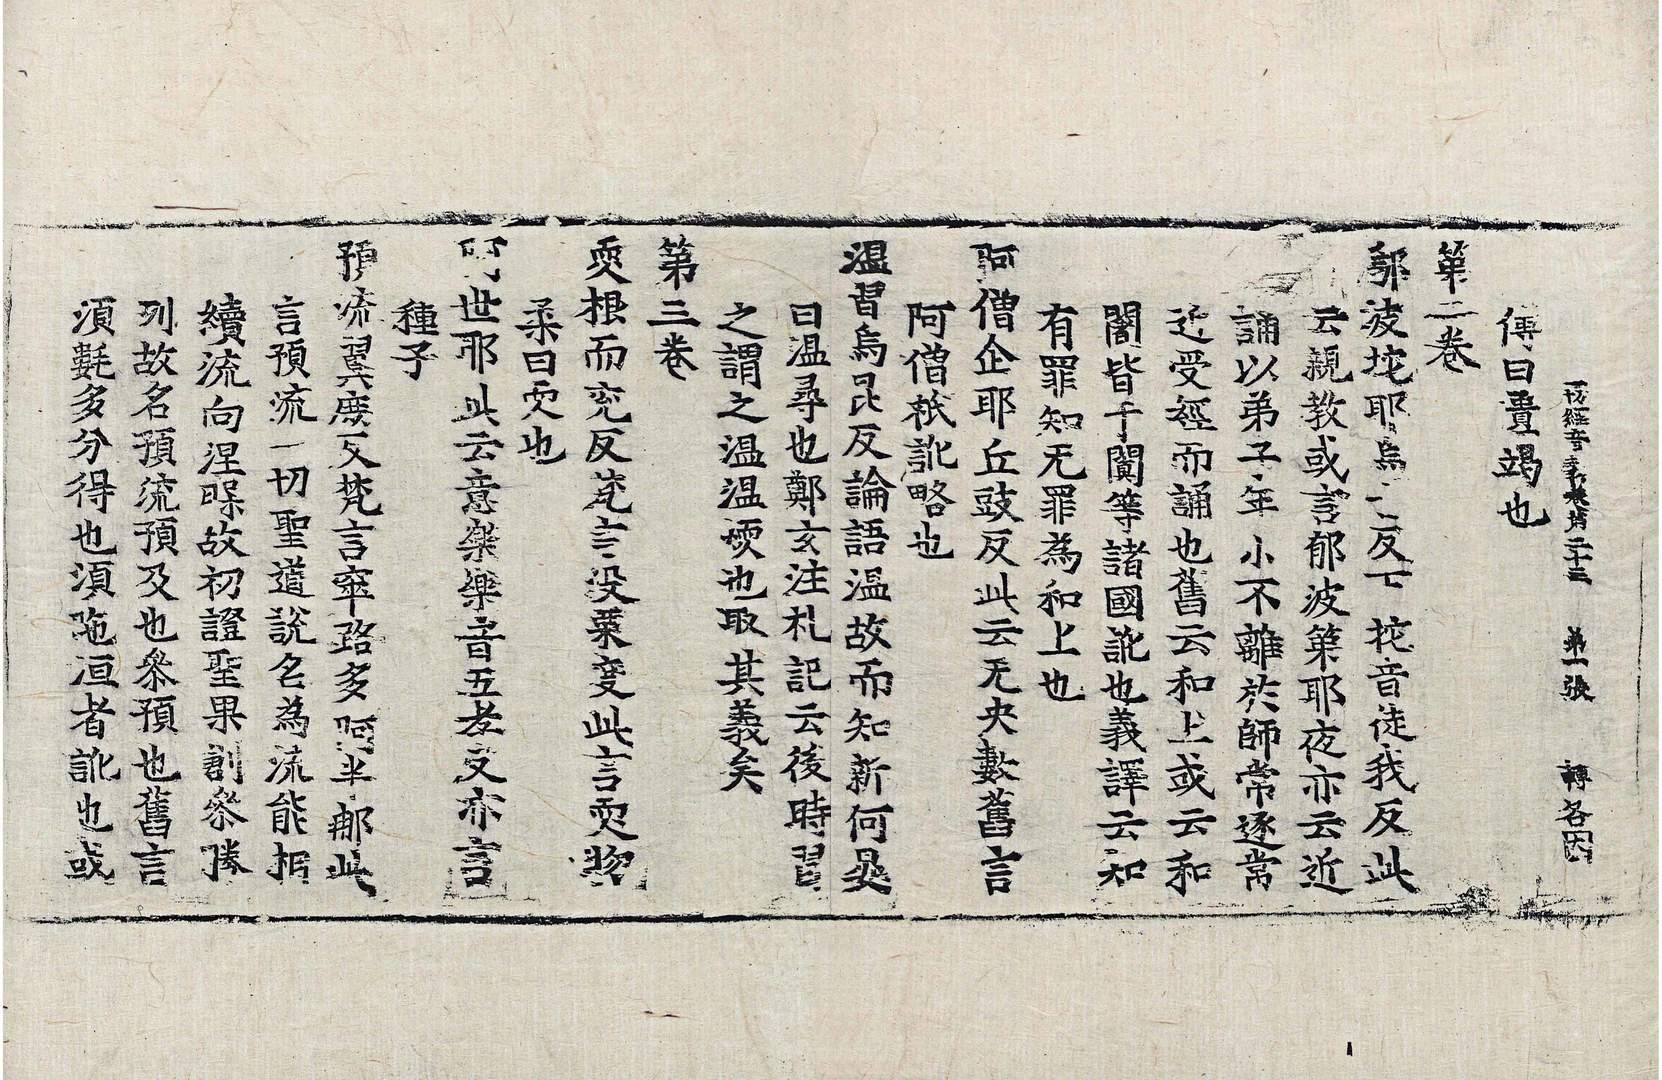 一切經音義卷第二十三 第一張 轉各因
傳曰賣竭也
第二卷
鄔波扡耶烏反下扡音徒我反此
云親教或言郁波第耶夜亦云近
誦以弟子年小不離於師常逐常
近受經而誦也舊云和上或云和
闍皆于闐等諸國訛也義譯云知
有罪知无罪為和上也
阿僧企耶丘豉反此云无央數舊言
阿僧祇訛略也
溫習烏昆反論語溫故而知新何晏
曰溫尋也鄭玄注札記云後時習
之謂之溫溫煗也取其義矣
第三卷
耎根而兖反梵言没栗度此言耎物
柔曰耎也
阿世耶此云意樂樂音五孝反亦言
種子
預流翼庶反梵言窣路多阿半那此
言預流一切聖道說名為流能相
續流向涅槃故初證聖果創參勝
列故名預流預及也參預也舊言
須氀多分得也須陁洹者訛也或